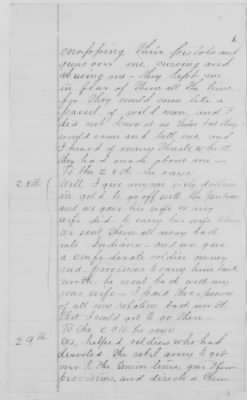 snapping their pistols and
guns over me, cursing and
abusing me - they kept me
in fear of them all the time
for they would come like a
parcel of wild men, and I
did not know at no time but they
would come and kill me, and
I heard of many threats which
they had made about me -
To the 28th he says
28th Well I give my son sixty dollars
in gold to go off with the
and we gave his wife or my
wife did to carry his wife when
we sent them all away back
into Indiana - and we gave
a confederate soldier money
and provisions to carry him back
north. he went back with my
sons wife - I paid the expenses
of all my relation back north
that I could get to go there -
To the 29th he says
29th Yes, helped soldiers who had
deserted the rebel army to get
over to the union lines, give them
provisions, and directed them